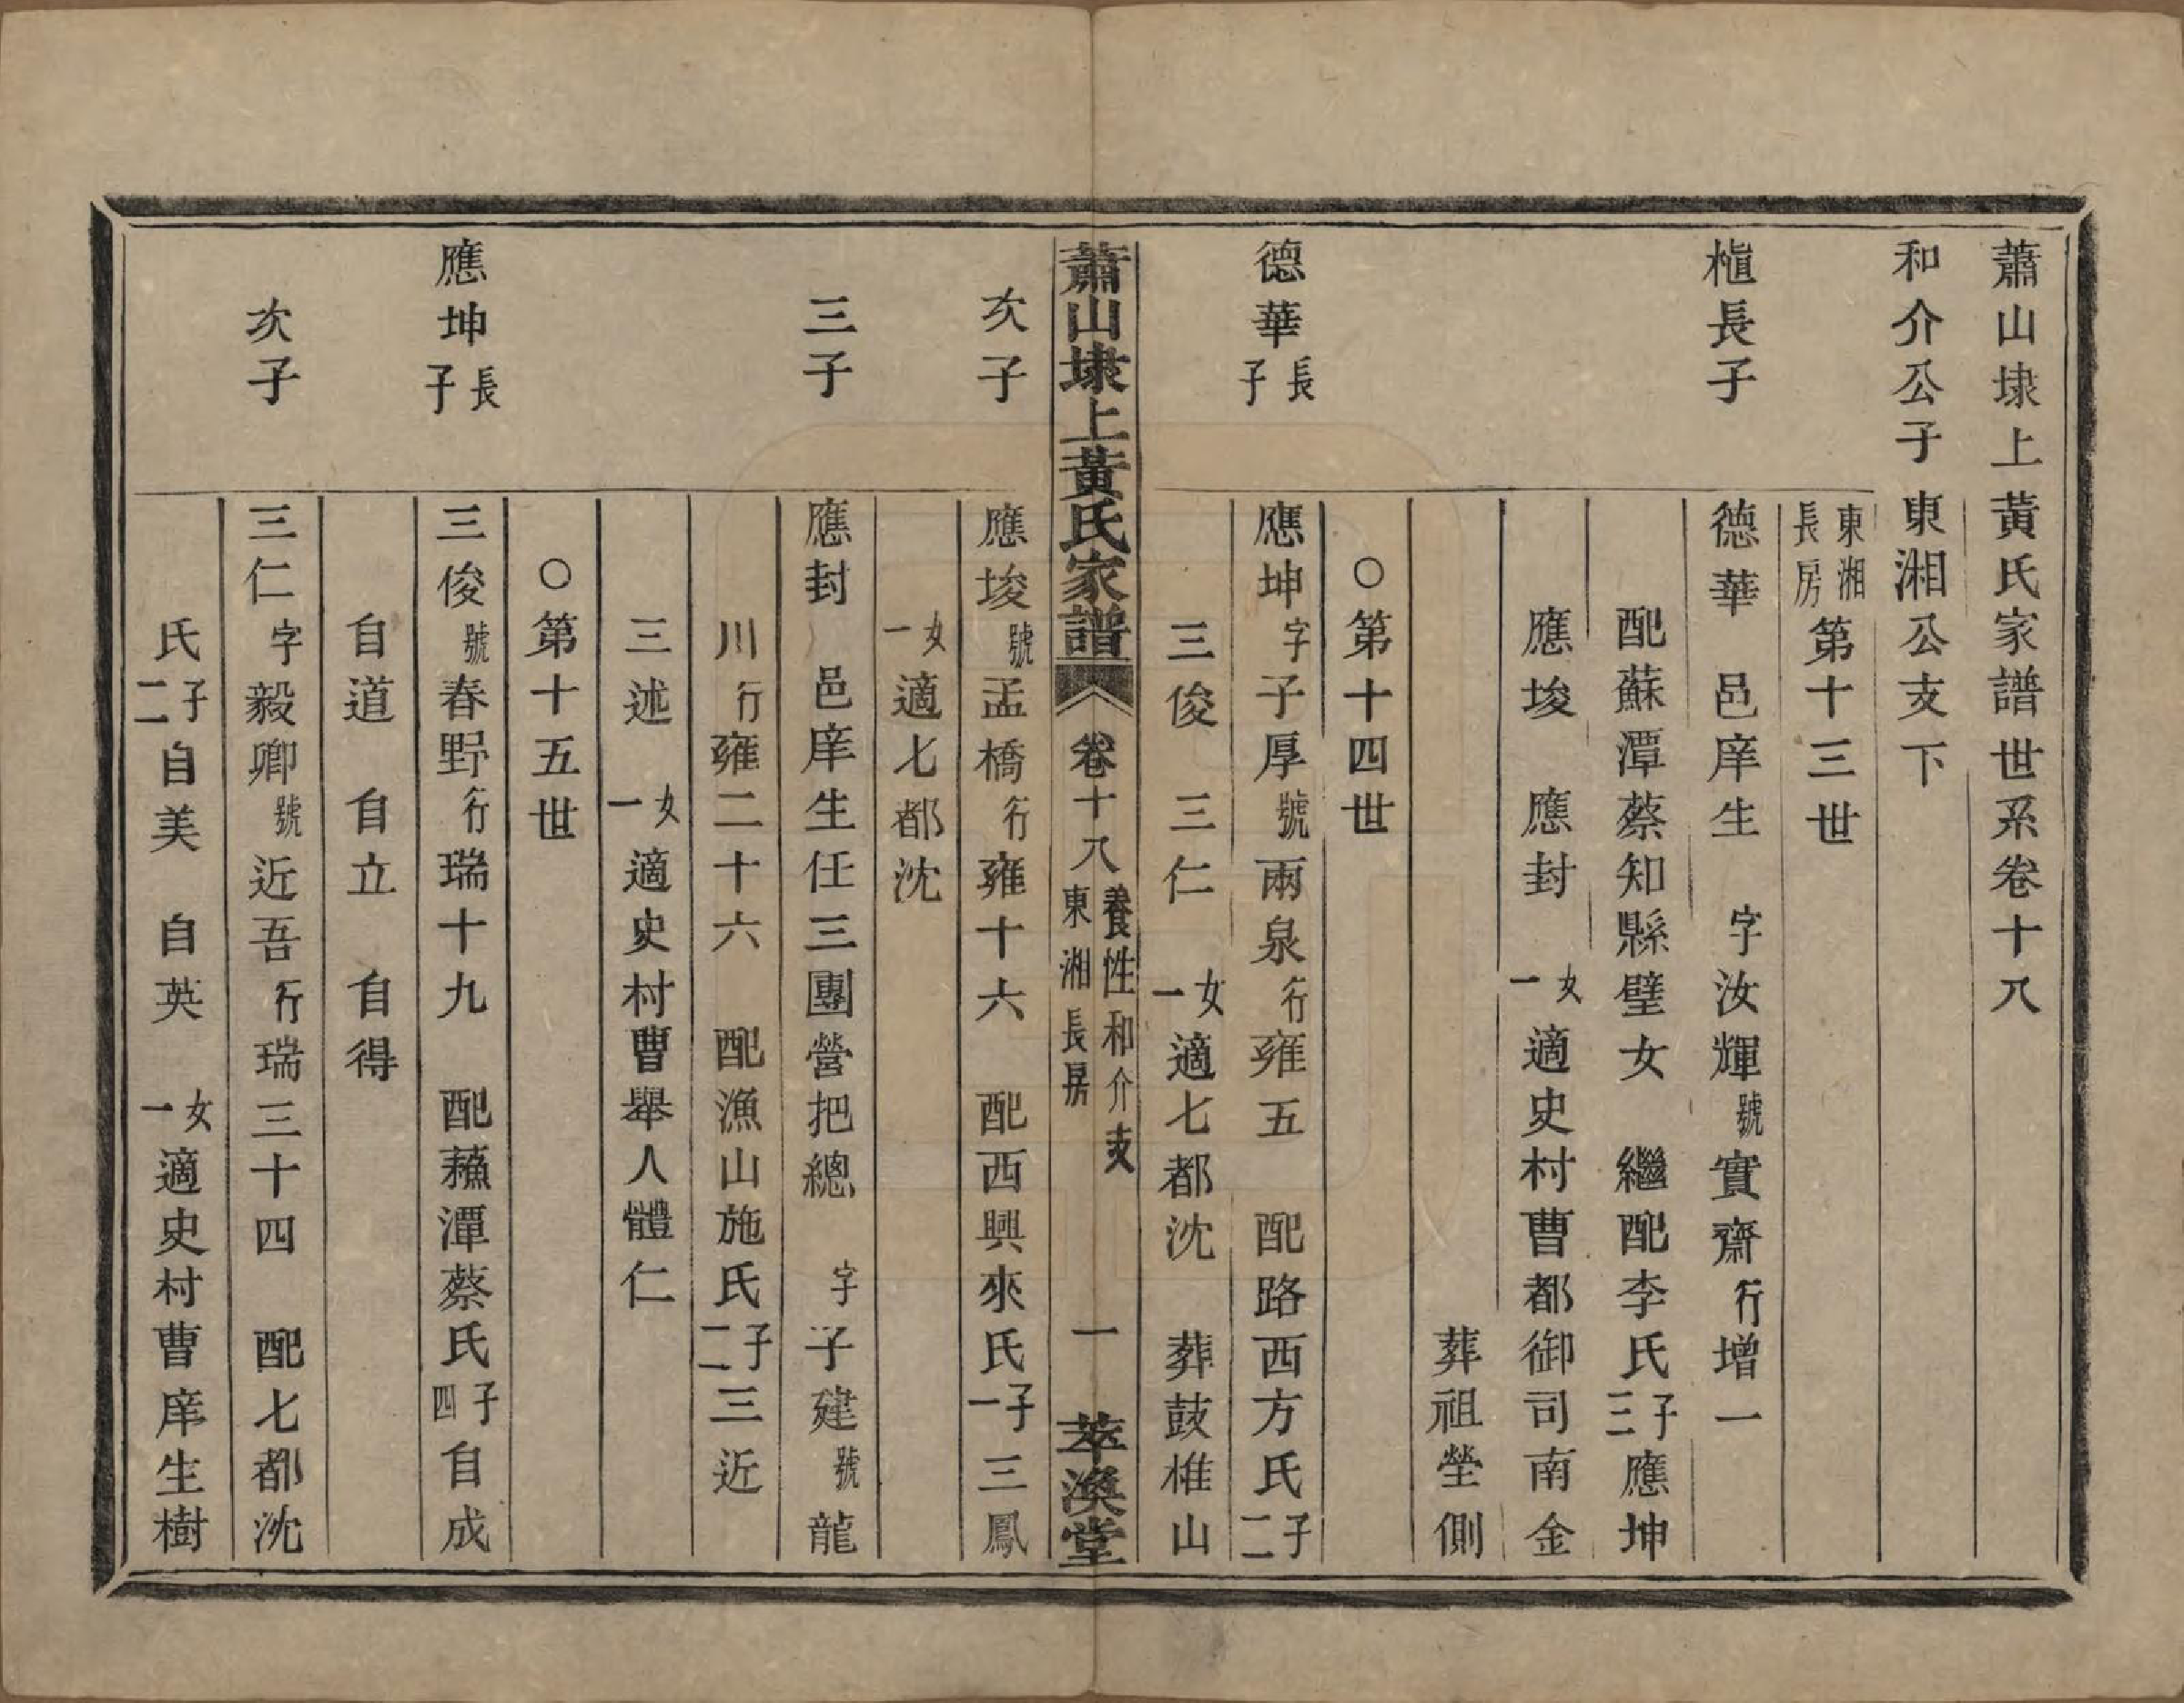 蕭山埭上黃氏家譜世系卷十八
和介公子東湘公支下
東湘長房第十三世
槙長子
德華 邑庠生 字汝輝號實齋行增一
配蘇潭蔡知縣璧女 繼配李氏子三應坤
應埈 應封 女一適史村曹都御司南金
葬祖塋側
○第十四世
德華長子
應坤字子厚號兩泉行雍五 配路西方氏子二
三俊 三仁 女一適七都沈 葬鼓椎山
蕭山埭上黃氏家譜 卷十八 養性和介支 東湘長房 一 萃渙堂
次子
應埈號孟橋行雍十六 配西興來氏子一三鳳
女一適七都沈
三子
應封 邑庠生任三團營把總 字子建號龍
川行雍二十六 配漁山施氏子二三近
三述 女一適史村曹舉人體仁
○第十五世
應坤長子
三俊號春野行瑞十九 配蘇潭蔡氏子四自成
自道 自立 自得
次子
三仁字毅卿號近吾行瑞三十四 配七都沈
氏子二自美 自英 女一適史村曹庠生樹